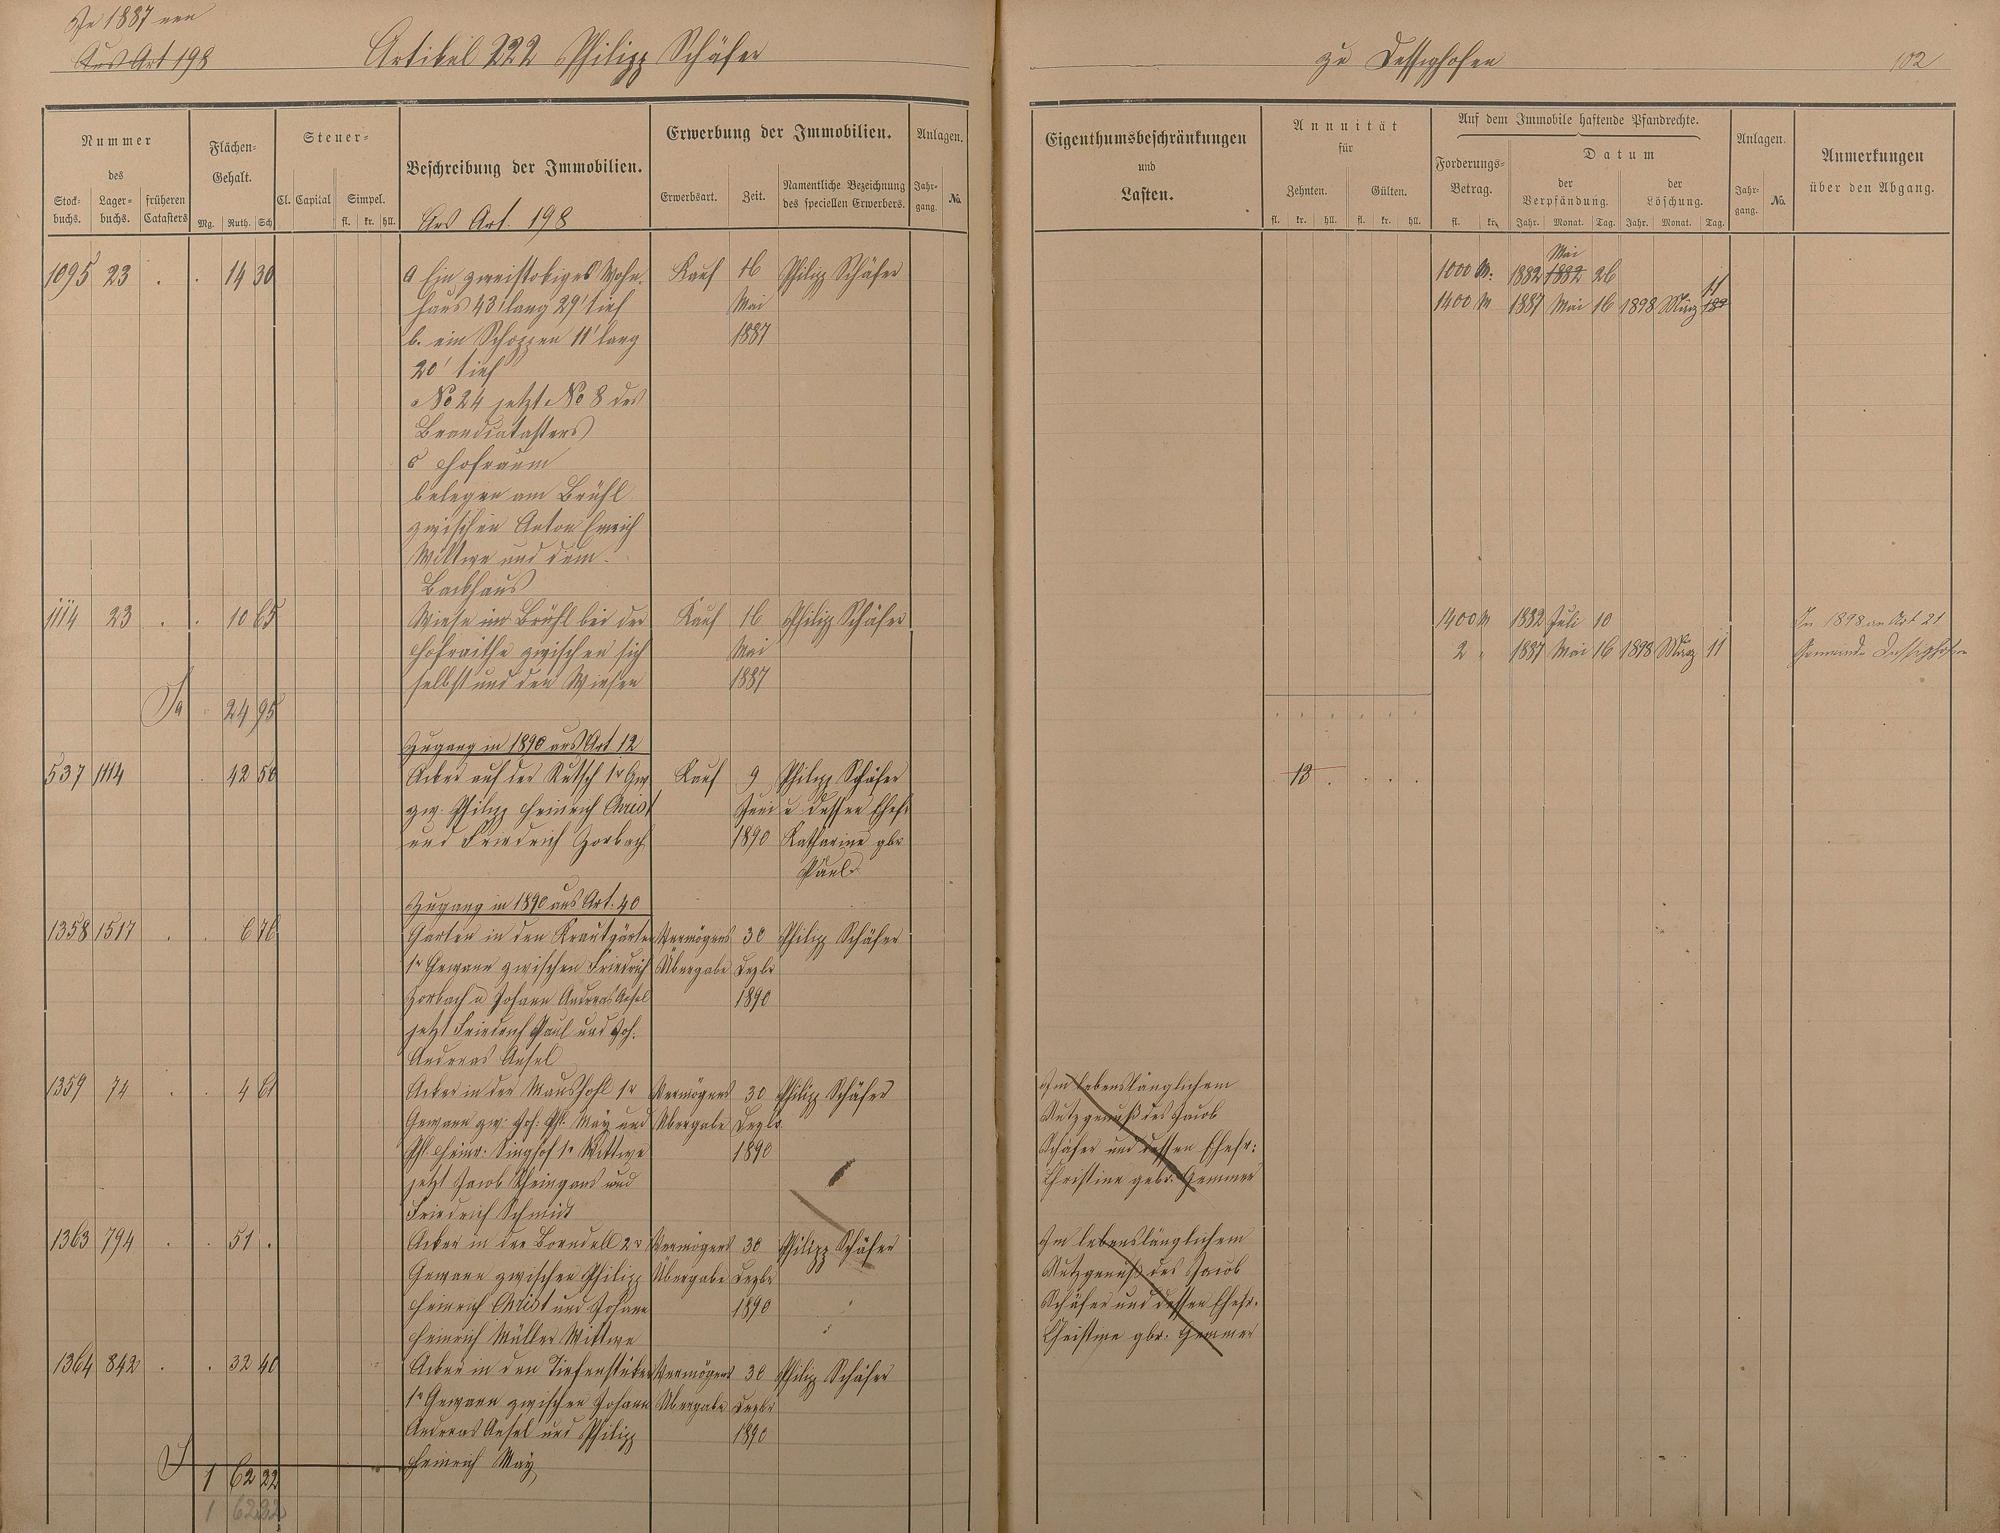 In 1887 neu
Aus Art 198
Artikel 222 Philipp Schäfer
zu Dessighofen
102
Nummer
des
Stockbuchs.
Lagerbuchs.
früheren Catasters
Flächen-
Gehalt.
Mg. Ruth. Sch
Steuer-
Cl. Capital Simpel.
fl. kr. hll.
Beschreibung der Immobilien.
Aus Art. 198
Erwerbung der Immobilien.
Erwerbsart. Zeit. Namentliche Bezeichnung des speciellen Erwerbers.
Anlagen.
Jahrgang. No.
Eigenthumsbeschränkungen
und
Lasten.
Annuität
für
Zehnten. Gülten.
fl. kr. hll. fl. kr. hll.
Auf dem Immobile haftende Pfandrechte.
Forderungs-Betrag.
fl. kr.
Datum
der Verpfändung.
der Löschung.
Jahr. Monat. Tag. Jahr. Monat. Tag.
Anlagen.
Jahrgang. No.
Anmerkungen
über den Abgang.
1095 23 . . 14 30 a Ein zweistokiges Wohn- Kauf 16 Philipp Schäfer
haus 43' lang 29' tief Mai
b. ein Schoppen 11' lang 1887
20' tief
No 24 jetzt No 8 des
Brandcatasters
c Hofraum
belegen am Brühl
zwischen Anton Emrich
Wittwe und dem
Backhaus
Mai
1000 M. 1882 1882 26
11
1400 M 1887 Mai 16 1898 März 189
1114 23 . . 10 65 Wiese im Brühl bei der Kauf 16 Philipp Schäfer
Hofraithe zwischen sich Mai
selbst und den Wiesen 1887
Sa . 24 95
1400 M 1882 Juli 10
2 " 1887 Mai 16 1898 März 11
In 1898 an Art 21
Gemeinde Dessighofen
Zugang in 1890 aus Art 12
537 1114 . 42 50 Acker auf der Rutsch 1r Gew Kauf 9 Philipp Schäfer
zw. Philipp Heinrich Christ Juni u dessen Ehefr
und Friedrich Zorbach 1890 Katharine gbr
Paul
13 . . . .
Zugang in 1890 aus Art. 40
1358 1517 . . 6 76 Garten in den Krautgärten Vermögens 30 Philipp Schäfer
1r Gewann zwischen Friedrich Übergabe Dezbr
Zorbach u Johann Andreas Ansel 1890
jetzt Friedrich Paul und Joh.
Andreas Ansel
1359 74 . . 4 61 Acker in der Maushohl 1r Vermögens 30 Philipp Schäfer
Gewann zw. Joh. Ph. May und Übergabe Dezbr
Ph. Heinr. Singhof 1r Wittwe 1890
jetzt Jacob Rheingans und
Friedrich Schmidt
Im lebenslänglichem
Nutzgenuß des Jacob
Schäfer und dessen Ehefr:
Christine gebr. Gemmer
1363 794 . . 51 . Acker in der Borndell 2r Vermögens 30 Philipp Schäfer
Gewann zwischen Philipp Übergabe Dezbr
Heinrich Christ und Johann 1890
Heinrich Müller Wittwe
Im lebenslänglichem
Nutzgenuß des Jacob
Schäfer und dessen Ehefr.
Christine gbr. Gemmer
1364 842 . . 32 40 Acker in den Tiefenstüker Vermögens 30 Philipp Schäfer
1r Gewann zwischen Johann Übergabe Dezbr
Andreas Ansel und Philipp 1890
Heinrich May
S 1 62 22
1 62 32